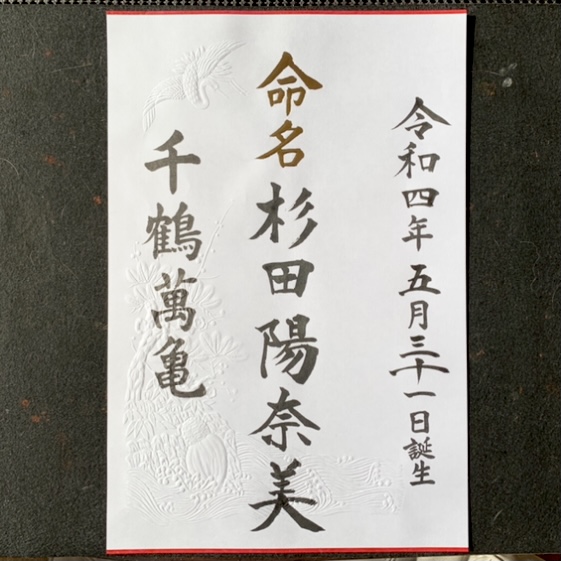 令和四年 五月三十一日誕生
命名 杉田陽奈美
千鶴萬亀